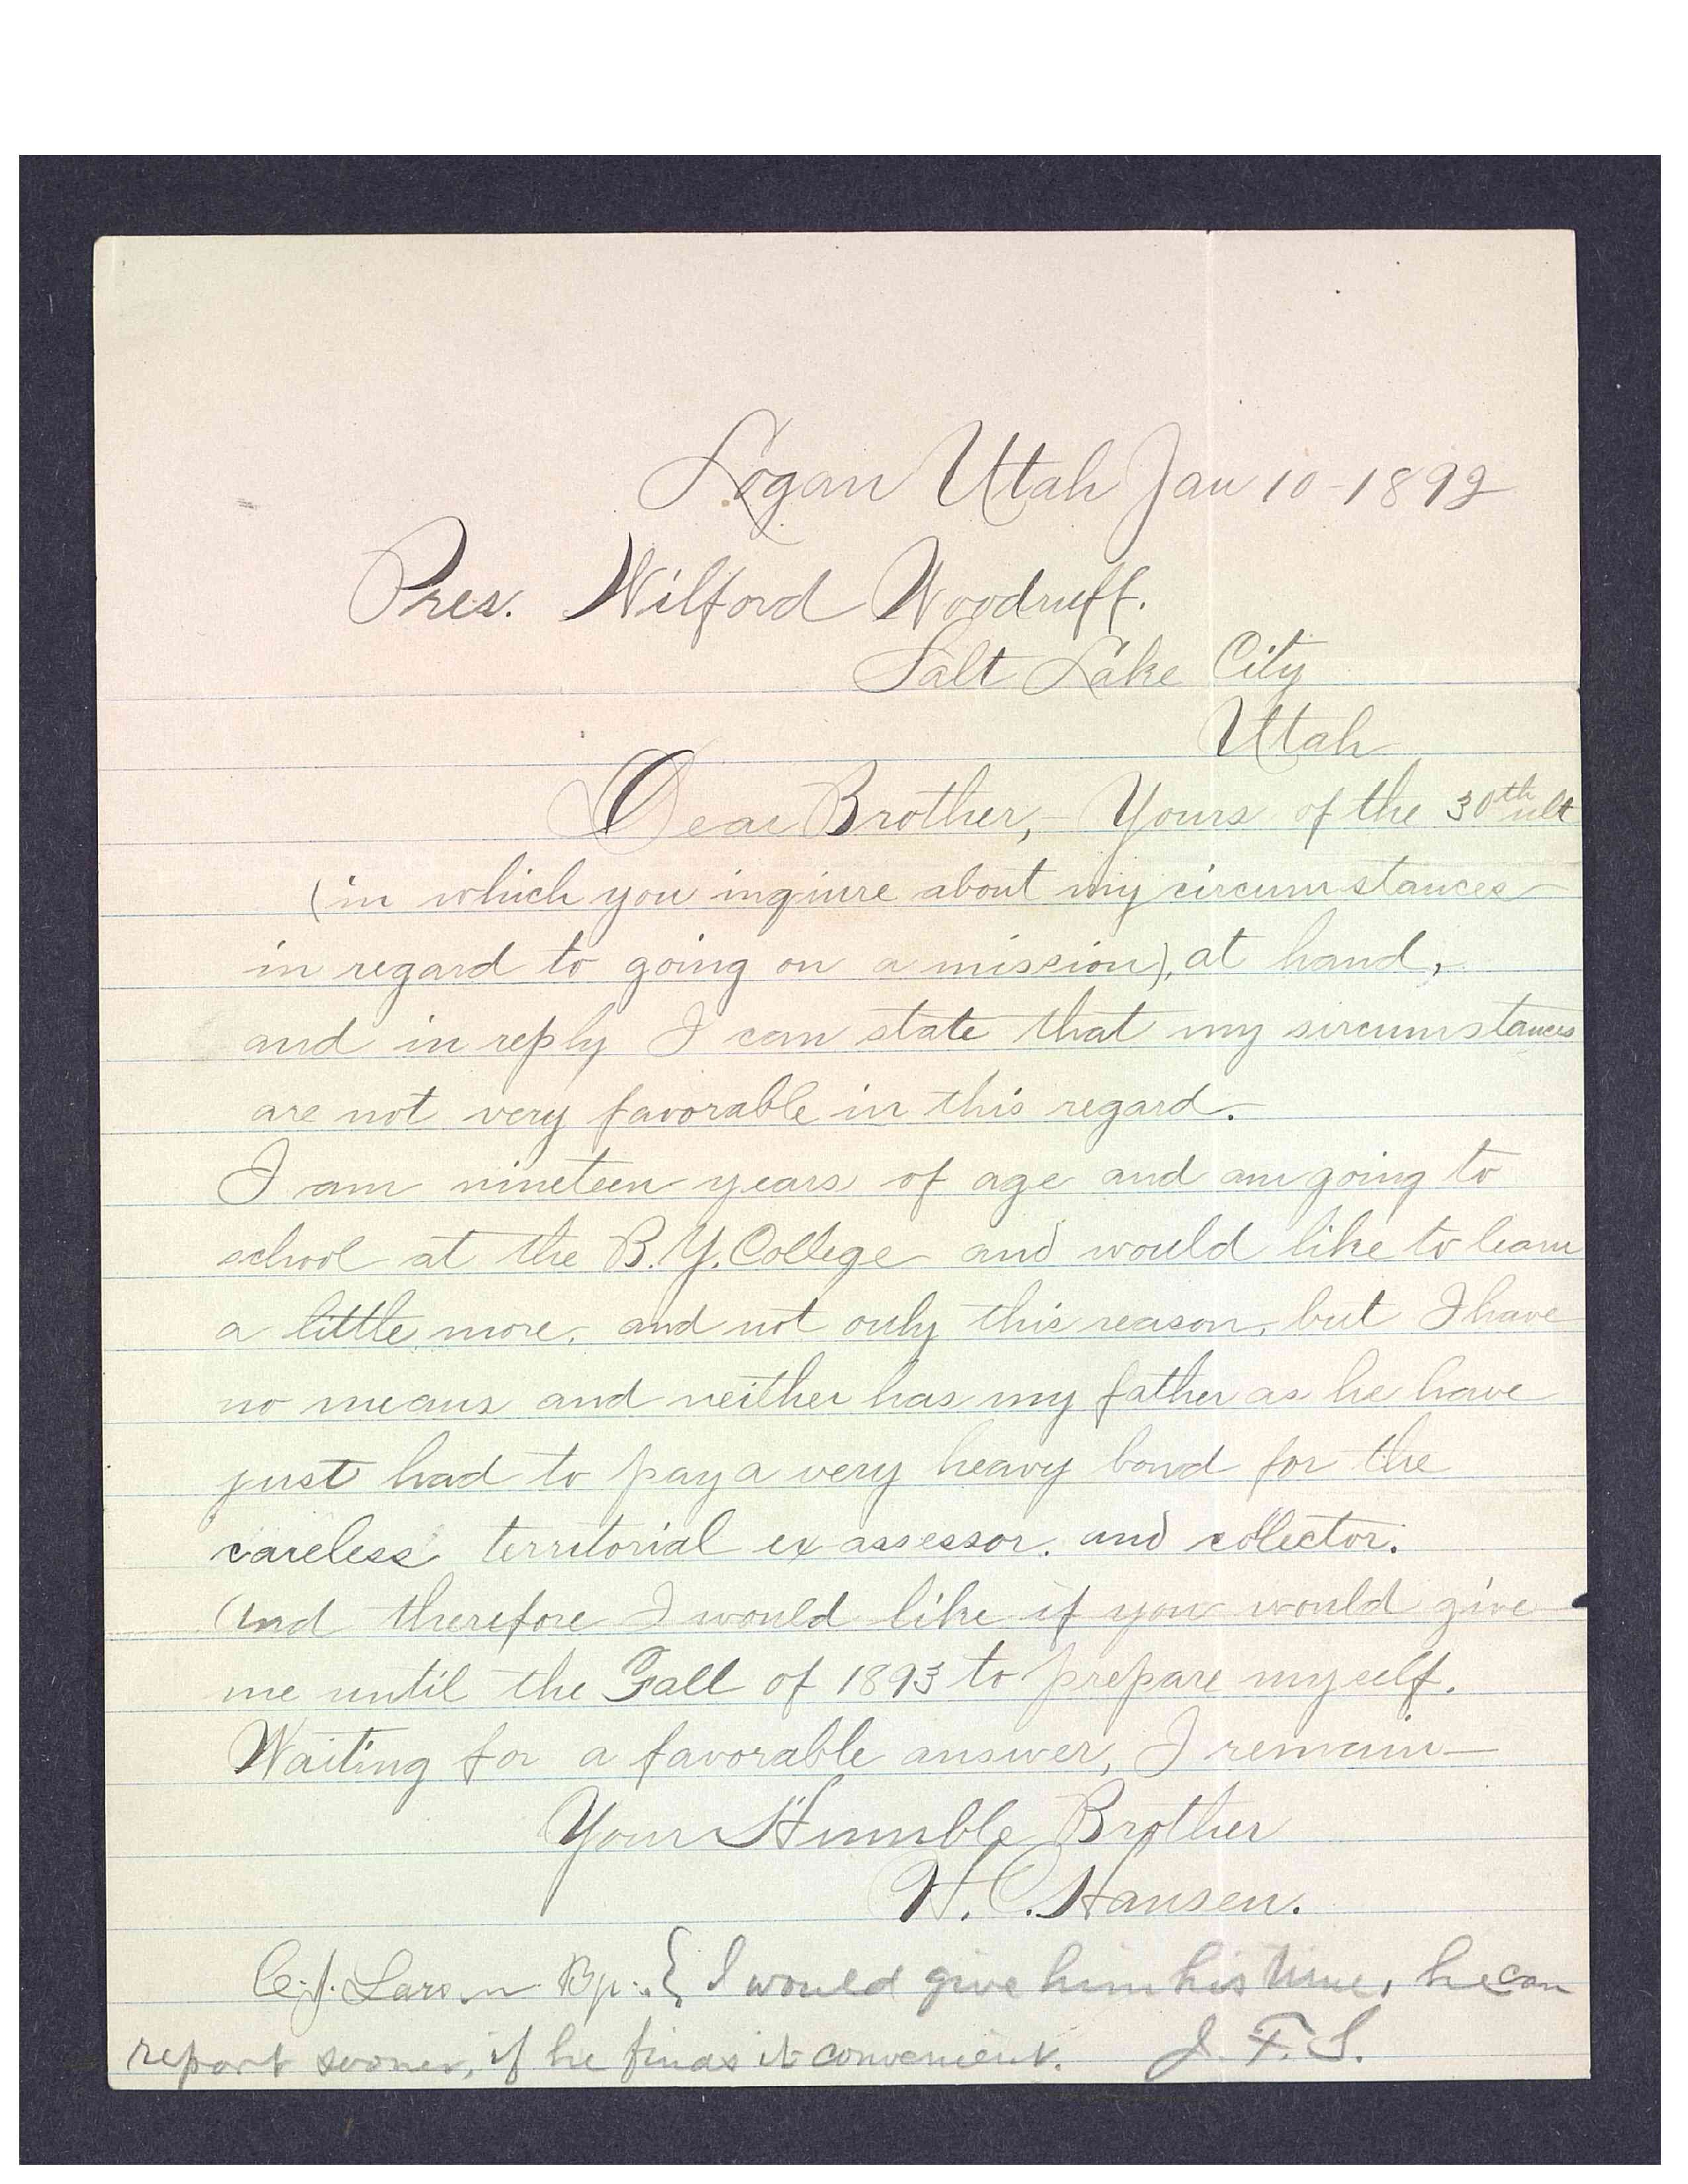 Logan Utah Jan 10-1892
Pres. Wilford Woodruff.
Salt Lake City
Utah
Dear Brother, Yours of the 30th ult
(in which you inqiure about my circumstances
in regard to going on a mission), at hand,
and in reply I can state that my sircumstances
are not very favorable in this regard.
I am nineteen years of age and am going to
school at the B.Y. College and would like to learn
a little more, and not only this reason, but I have
no means and neither has my father as he have
just had to pay a very heavy bond for the
careless territorial ex assessor. and collector.
And therefore I would like if you would give
me until the Fall of 1893 to prepare myself.
Waiting for a favorable answer, I remain—
Your Humble Brother
H. C. Hansen.
C. J. Larsen Bp. { I would give him his time, he can
report sooner, if he finds it convenient. J. F. S.